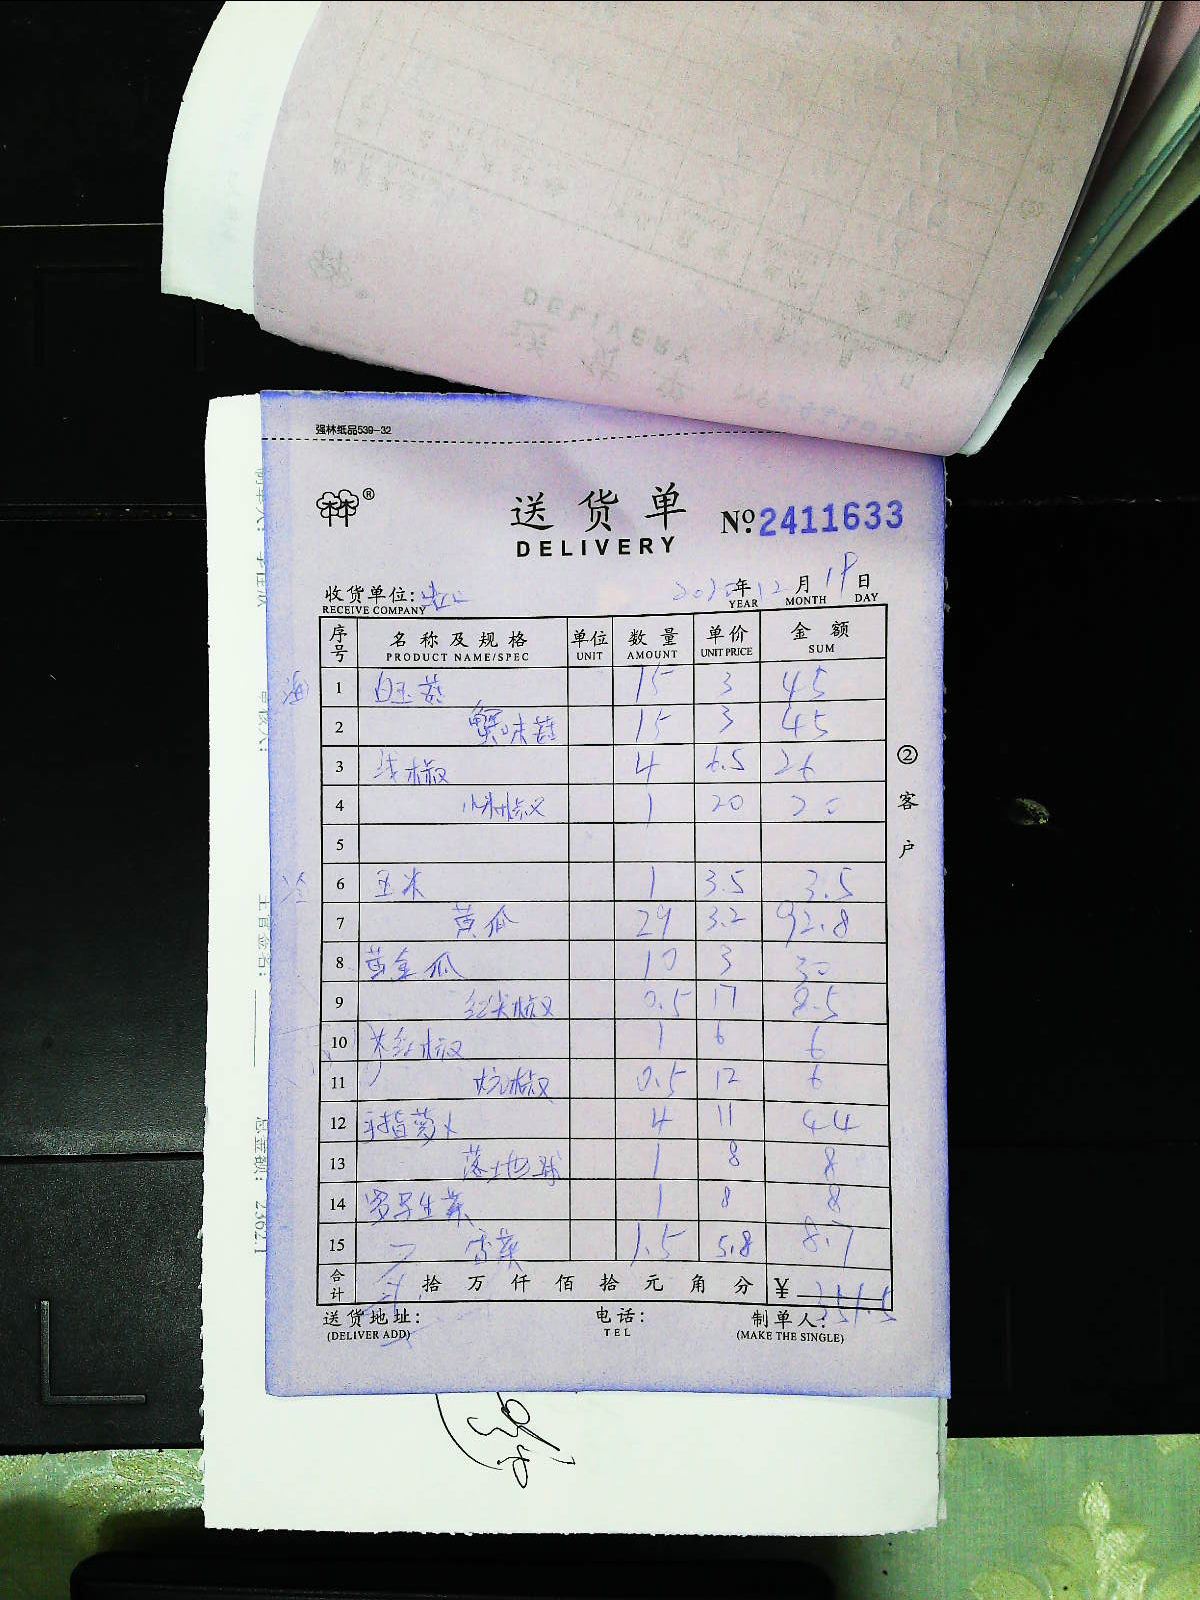 强林纸品539-32
送货单
DELIVERY
№ 2411633
收货单位:
RECEIVE COMPANY
2020年12月19日
YEAR MONTH DAY
序号 名称及规格 单位 数量 单价 金额
PRODUCT NAME/SPEC UNIT AMOUNT UNIT PRICE SUM
1 白玉菇 15 3 45
2 蟹味菇 15 3 45
3 线椒 4 6.5 26
4 小米椒 1 20 20
5
6 玉米 1 3.5 3.5
7 黄瓜 29 3.2 92.8
8 黄金瓜 10 3 30
9 红尖椒 0.5 17 8.5
10 美红椒 1 6 6
11 杭椒 0.5 12 6
12 手指萝卜 4 11 44
13 落地球 1 8 8
14 罗马生菜 1 8 8
15 香菜 1.5 5.8 8.7
合计 拾万仟佰拾元角分 ¥351.5
送货地址: 电话: 制单人:
(DELIVER ADD) TEL (MAKE THE SINGLE)
②客户
主管签名:
总金额: 2362.1